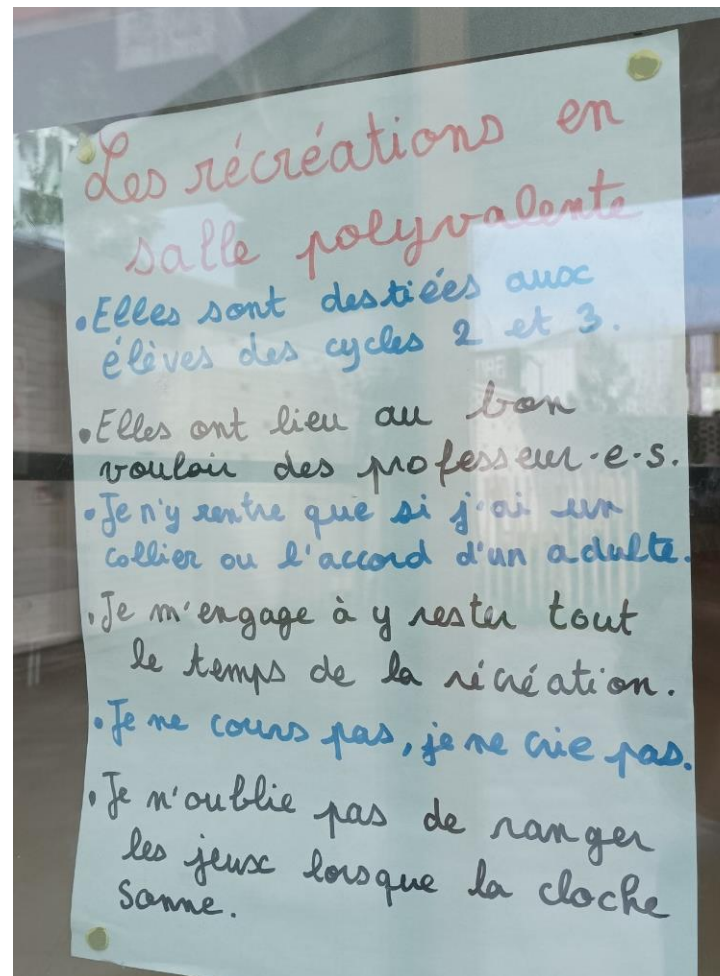 Les récréations en
salle polyvalente
• Elles sont destiées aux
élèves des cycles 2 et 3.
• Elles ont lieu au bon
vouloir des professeur·e·s.
• Je n'y rentre que si j'ai un
collier ou l'accord d'un adulte.
• Je m'engage à y rester tout
le temps de la récréation.
• Je ne cours pas, je ne crie pas.
• Je n'oublie pas de ranger
les jeux lorsque la cloche
sonne.